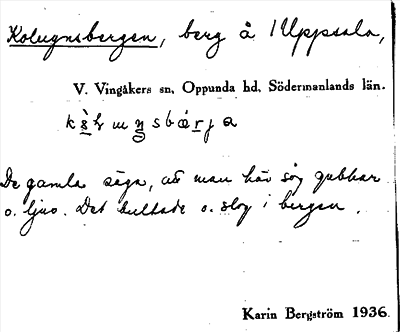 Kolugnsbergen, berg å / Uppsala,
V. Vingåkers sn, Oppunda hd, Södermanlands län.
De gamla säga, att man här såg gubbar
o. ljus. Det bultade o. slog i bergen.
Karin Bergström 1936.